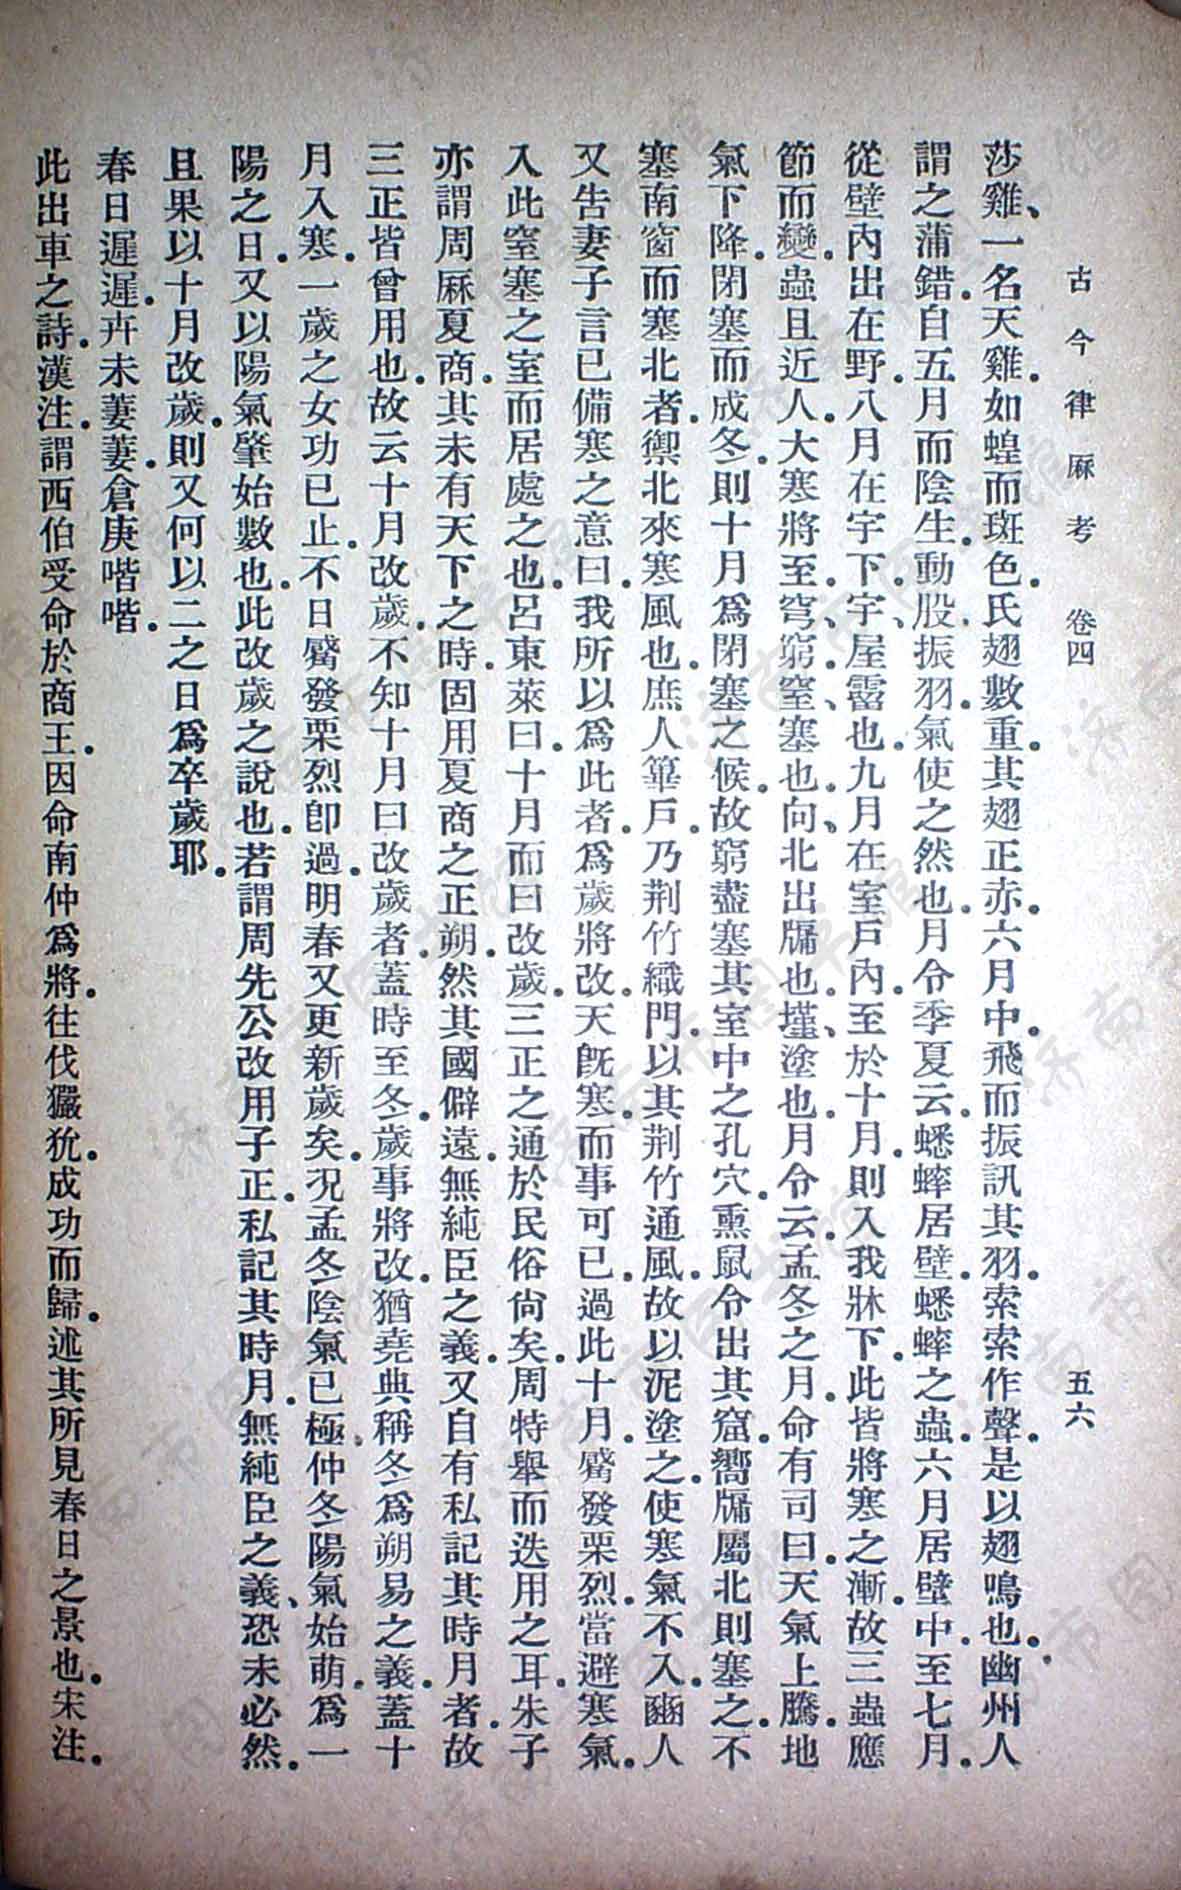 古今律厤考　卷四　五六
莎雞、一名天雞。如蝗而斑色。氏翅數重。其翅正赤。六月中。飛而振訊其羽。索索作聲。是以翅鳴也。幽州人
謂之蒲錯。自五月而陰生。動股振羽。氣使之然也。月令季夏云。蟋蟀居壁。蟋蟀之蟲。六月居壁中。至七月。
從壁內出在野。八月在宇下。宇、屋霤也。九月在室戶內。至於十月。則入我牀下。此皆將寒之漸。故三蟲應
節而變。蟲且近人。大寒將至。穹、窮。窒、塞也。向、北出牖也。墐、塗也。月令云。孟冬之月。命有司曰。天氣上騰。地
氣下降。閉塞而成冬。則十月爲閉塞之候。故窮盡塞其室中之孔穴。熏鼠令出其窟。嚮牖屬北則塞之。不
塞南窗而塞北者。禦北來寒風也。庶人篳戶。乃荆竹織門。以其荆竹通風。故以泥塗之。使寒氣不入。豳人
又告妻子言已備寒之意曰。我所以爲此者。爲歲將改。天旣寒。而事可已。過此十月。觱發栗烈。當避寒氣。
入此窒塞之室而居處之也。呂東萊曰。十月而曰改歲。三正之通於民俗尙矣。周特舉而迭用之耳。朱子
亦謂周厤夏商。其未有天下之時。固用夏商之正朔。然其國僻遠。無純臣之義。又自有私記其時月者。故
三正皆曾用也。故云十月改歲。不知十月曰改歲者。蓋時至冬。歲事將改。猶堯典稱冬爲朔易之義。蓋十
月入寒。一歲之女功已止。不日觱發栗烈卽過。明春又更新歲矣。況孟冬陰氣已極。仲冬陽氣始萌。爲一
陽之日。又以陽氣肇始數也。此改歲之說也。若謂周先公改用子正。私記其時月。無純臣之義、恐未必然。
且果以十月改歲。則又何以二之日爲卒歲耶。
春日遲遲。卉未萋萋。倉庚喈喈。
此出車之詩。漢注。謂西伯受命於商王。因命南仲爲將。往伐玁狁。成功而歸。述其所見春日之景也。宋注。